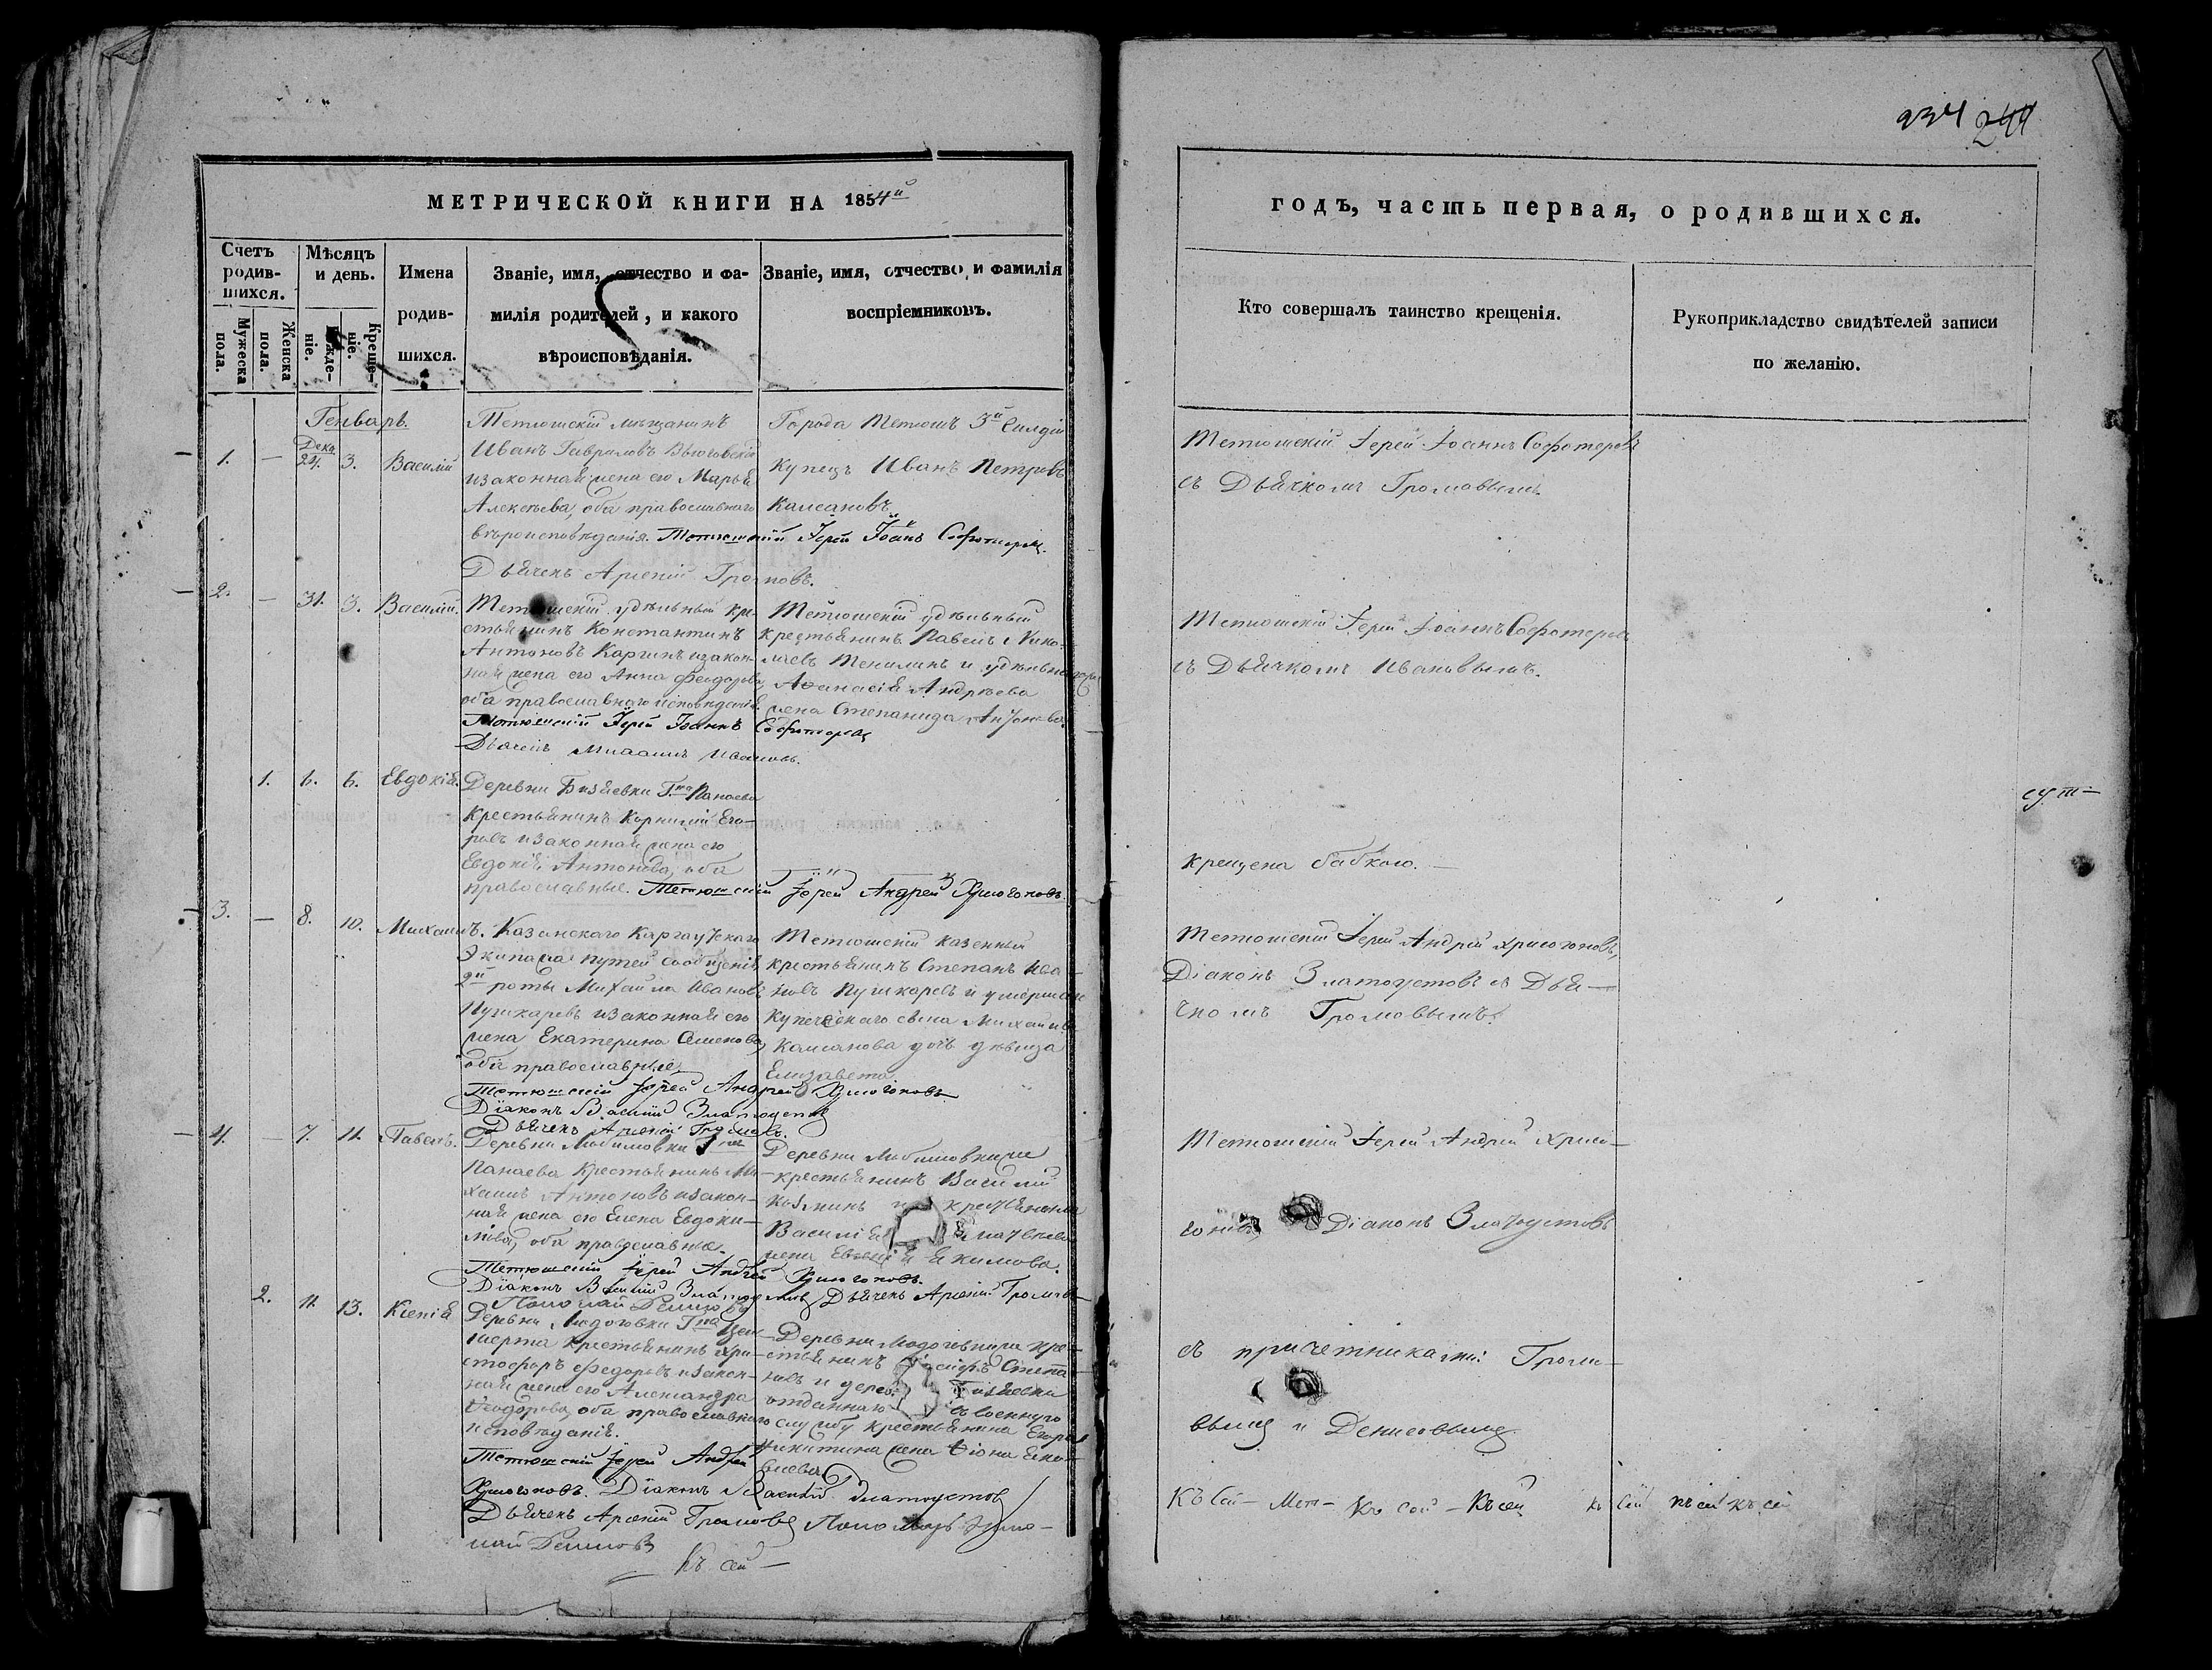 234 244
МЕТРИЧЕСКОЙ КНИГИ НА 1854й
годъ, часть первая, о родившихся.
Счетъ родив-шихся.
Мѣсяцъ и день.
Имена родив-шихся.
Званіе, имя, отчество и фа-
милія родителей, и какого
вѣроисповѣданія.
Званіе, имя, отчество, и фамилія
воспріемниковъ.
Мужеска пола.
Женска пола.
Рожде-ніе.
Креще-ніе.
Кто совершалъ таинство крещенія.
Рукоприкладство свидѣтелей записи
по желанію.
Генварь.
1. — Дека 24. 3. Василій
Тетюшскій мѣщанинъ
Иванъ Гавриловъ
и законная жена его Марья
Алексѣева, оба православнаго
вѣроисповѣданія. Тетюшскій Іерей Іоаннъ
Дьячекъ Арсеній Громовъ.
Города Тетюшъ 3й Гилдіи
купецъ Иванъ Петровъ
Камсановъ
Тетюшскій Іерей Іоаннъ Софотеровъ
съ Дьячкомъ Громовымъ
2. — 31. 3. Василій.
Тетюшскій удѣльный кре-
стьянинъ Константинъ
Антоновъ Каргинъ и закон-
ная жена его Анна Феодорова,
оба православнаго исповѣданія
Тетюшскій Іерей Іоаннъ Софотеровъ
Дьячекъ Михаилъ Ивановъ.
Тетюшскій удѣльный
крестьянинъ Павелъ Нико-
лаевъ и удѣльнаго
Афанасія Андреева
жена Степанида Антонова.
Тетюшскій Іерей Іоаннъ Софотеровъ
съ Дьячкомъ Ивановымъ.
1. 6. 6. Евдокія.
Деревни Бизяевки Гна Панаева
крестьянинъ Корнилій Его-
ровъ и законная жена его
Евдокія Антонова, оба
православные. Тетюшскій Іерей Андрей Хрисогоновъ.
крещена бабкою.
3. — 8. 10. Михаилъ.
Казанскаго
Экипажа путей сообщенія
2й роты Михайла Ивановъ
Пушкаревъ и законная его
жена Екатерина Семенова,
оба православные
Тетюшскій Іерей Андрей Хрисогоновъ
Діаконъ Василій Златоустовъ
Дьячекъ Арсеній Громовъ.
Тетюшскій казенный
крестьянинъ Степанъ Ива-
новъ Пушкаревъ и умершаго
купеческаго сына Михаила
Камсанова дочь дѣвица
Елизавета.
Тетюшскій Іерей Андрей Хрисогоновъ,
Діаконъ Златоустовъ съ Дья-
чкомъ Громовымъ.
4. — 7. 11. Павелъ.
Деревни Любимовки Гна
Панаева крестьянинъ Ми-
хаилъ Антоновъ и закон-
ная жена его Елена Евдоки-
мова, оба православные.
Тетюшскій Іерей Андрей Хрисогоновъ.
Діаконъ Василій Дьячекъ Арсеній Громовъ
Деревни Любимовки
крестьянинъ Василій
и крестьянина
Василія
жена Якимова.
Тетюшскій Іерей Андрей Хрисо-
гоновъ, Діаконъ Златоустовъ
2. 11. 13. Ксенія
Деревни Гна
крестьянинъ Хри-
стофоръ Федоровъ и закон-
ная жена его Александра
Феодорова, оба православнаго
исповѣданія.
Тетюшскій Іерей Андрей
Хрисогоновъ. Діаконъ Василій Златоустовъ
Дьячекъ Арсеній Громовъ Пономарь
Деревни кре-
стьянинъ Степа-
новъ и Бизяевки
отданнаго въ военную
службу крестьянина Егора
Никитина жена
съ причетниками: Громо-
вымъ и Денисовымъ
Къ сей —
Къ Сей — Мет — Къ сей — Къ сей къ сей къ сей къ сей